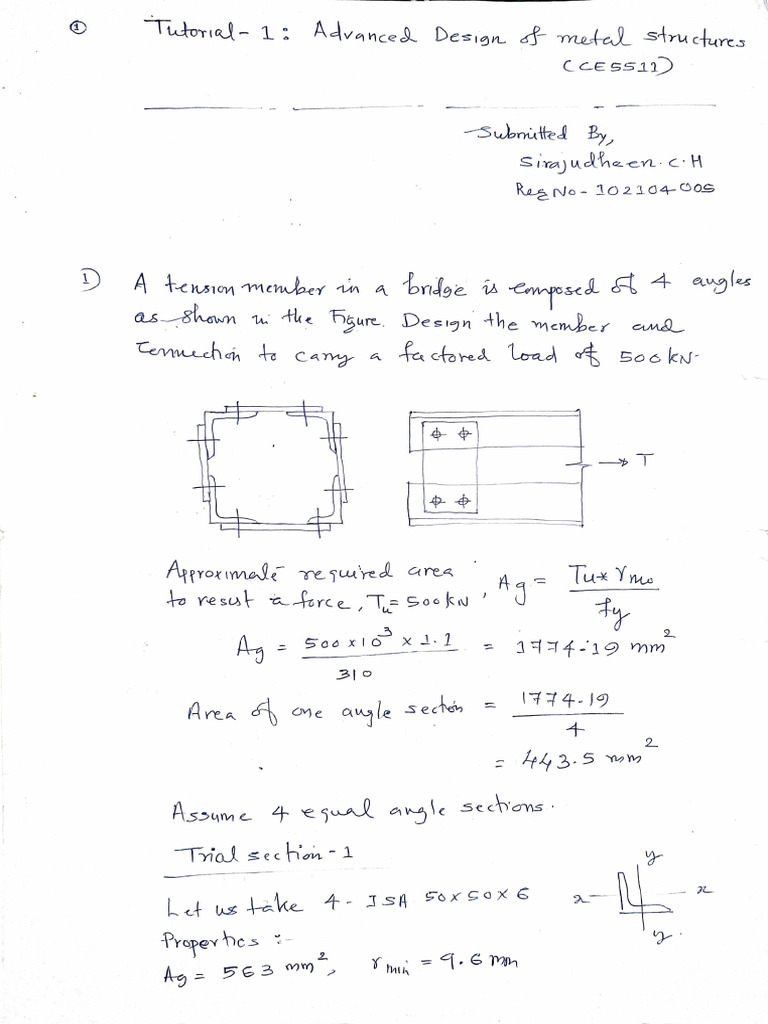 ①
Tutorial - 1 : Advanced Design of metal structures
(CE5511)
Submitted By,
Sirajudheen. C. H
Reg No - 102104005
1) A tension member in a bridge is composed of 4 angles
as shown in the Figure. Design the member and
connection to carry a factored load of 500 kN.
T
Approximate required area
to resist a force, Tu = 500kN, Ag = Tu * γmo / fy
Ag = 500 x 10³ x 1.1 / 310 = 1774.19 mm²
Area of one angle section = 1774.19 / 4
= 443.5 mm²
Assume 4 equal angle sections.
Trial section - 1
Let us take 4 - ISA 50 x 50 x 6
x x y y
Properties :-
Ag = 563 mm², rmin = 9.6 mm